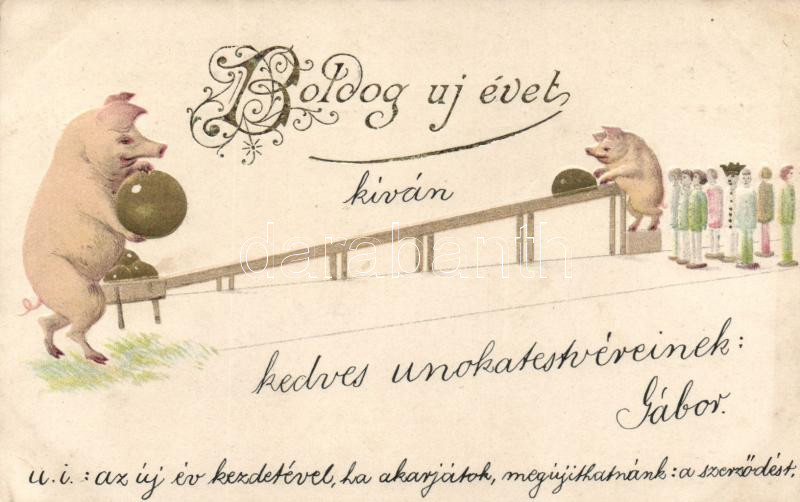 Boldog uj évet
kiván
darabanth
kedves unokatestvéreinek:
Gábor.
u.i.: az új év kezdetével, ha akarjátok, megújithatnánk: a szerződést.